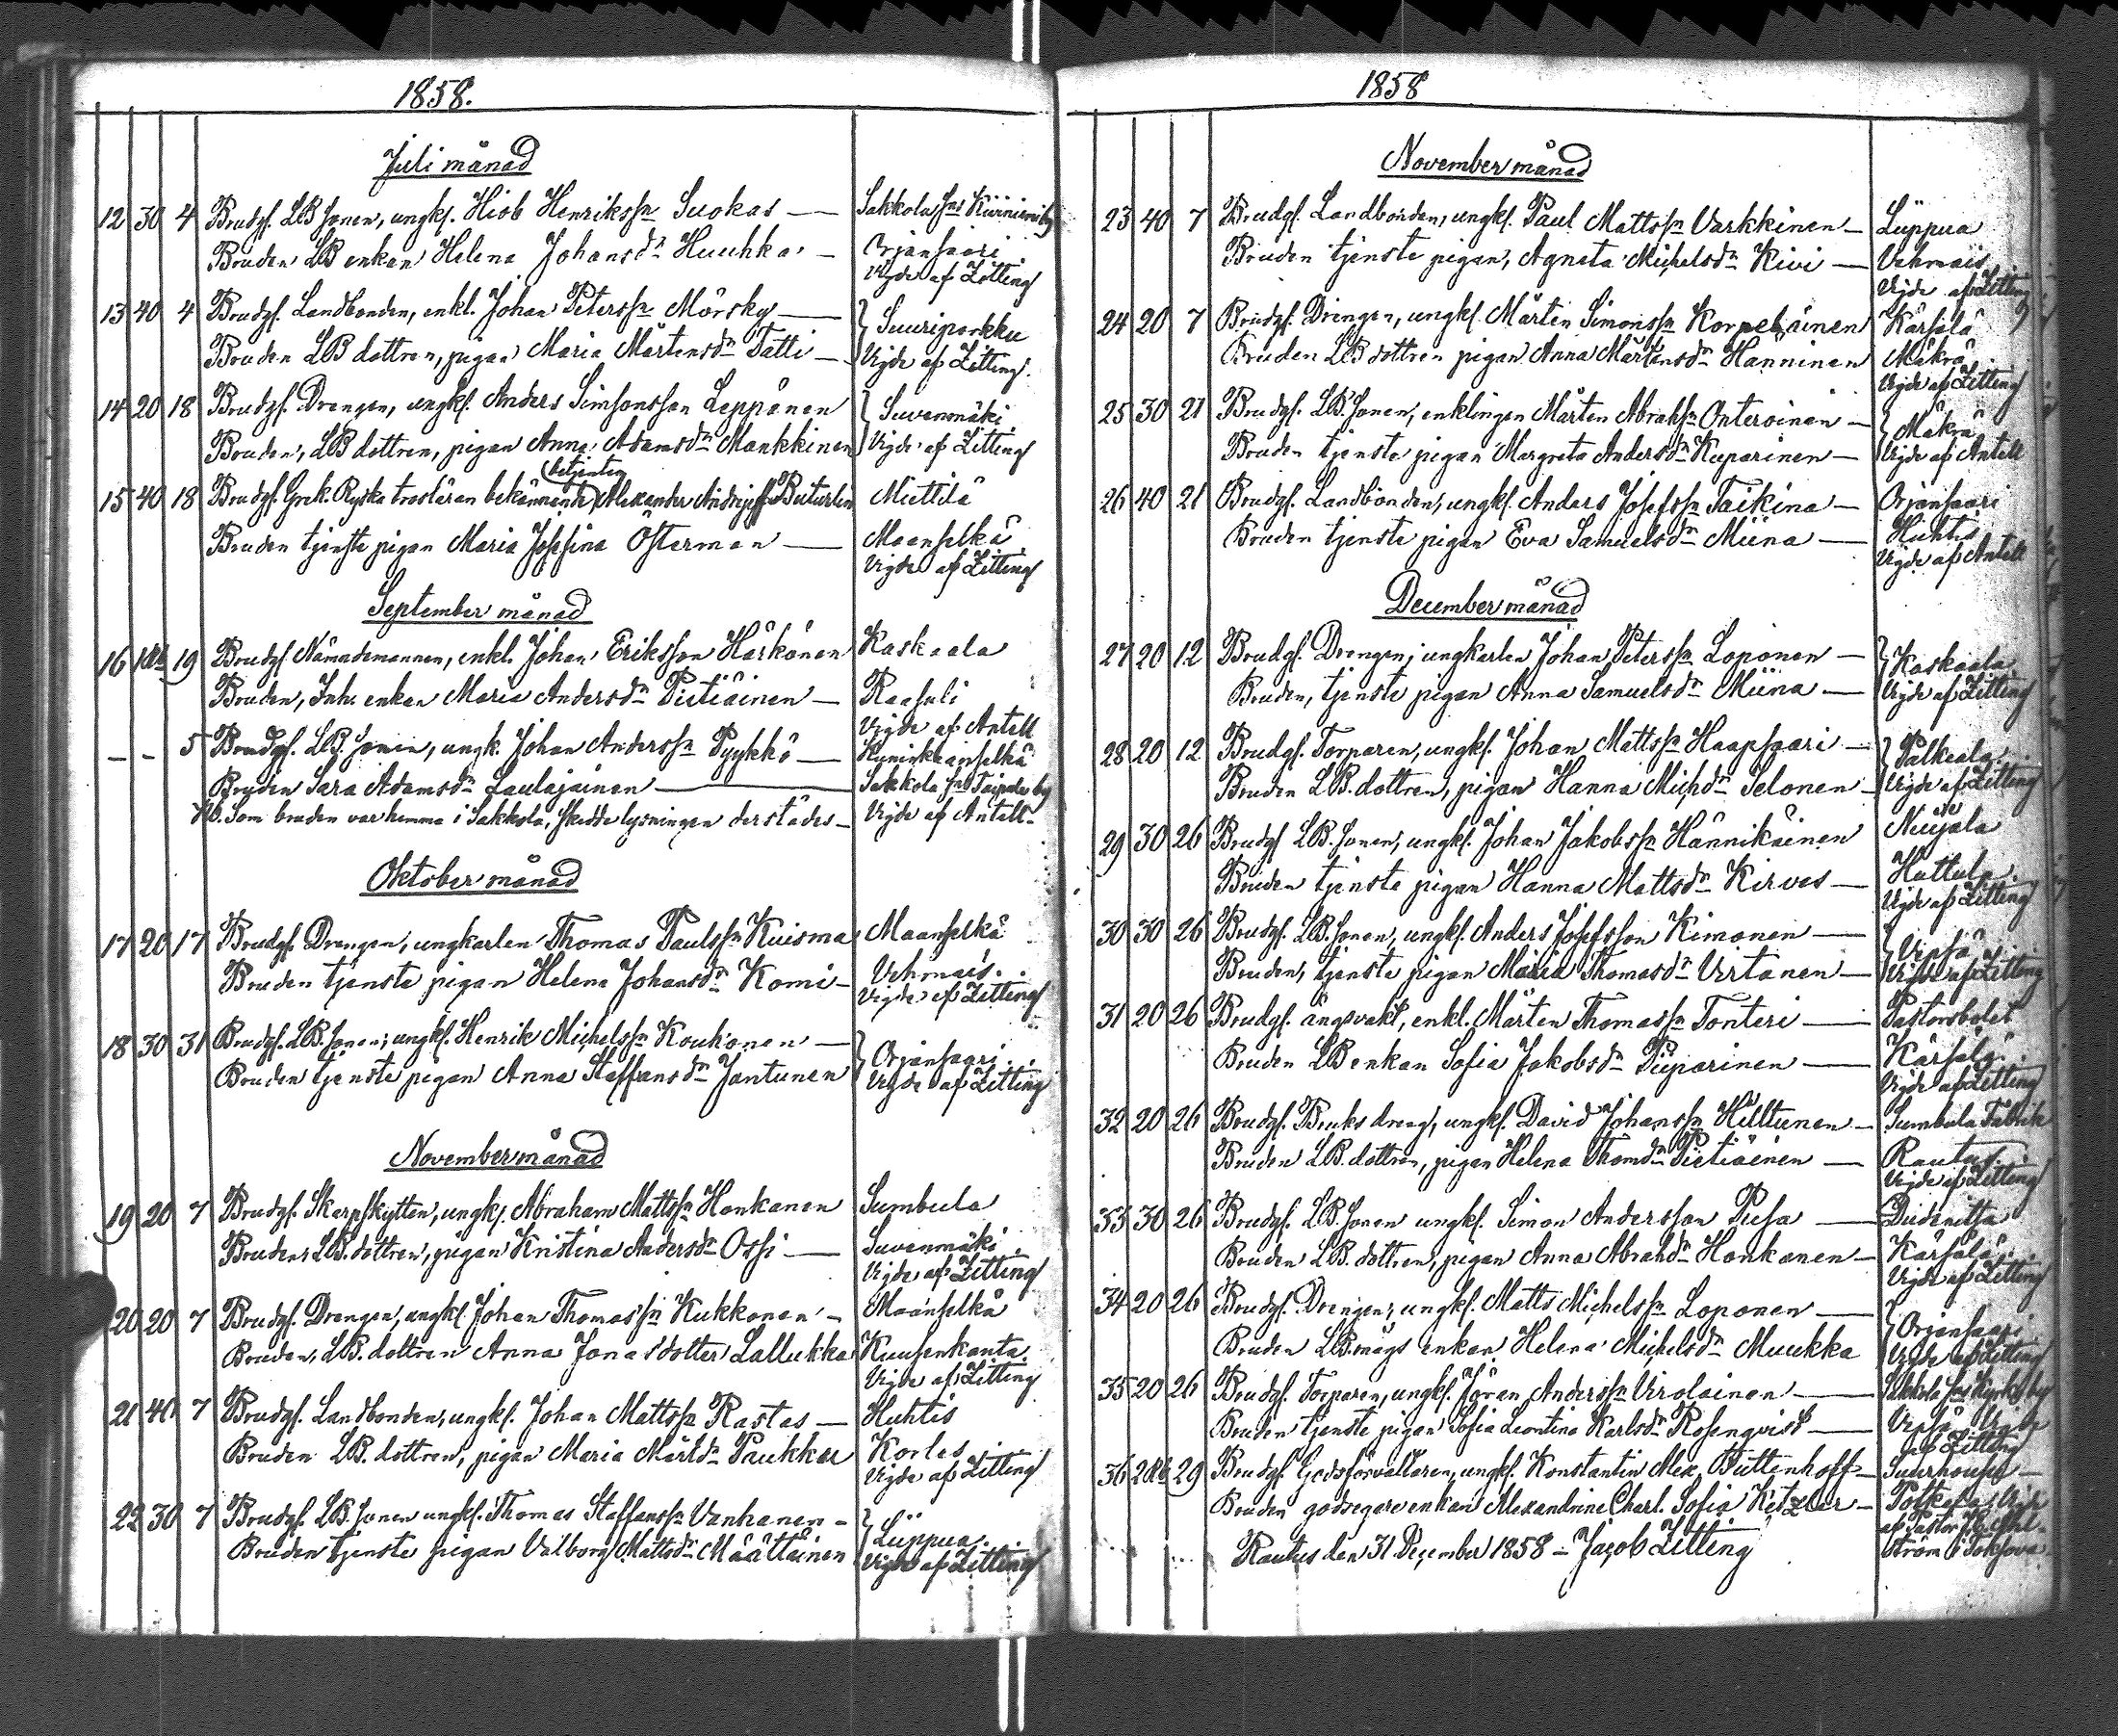 1858.
Juli månad
12 30 4 Brudg. LB sonen, ungk. Hiob Henrikssn Suokas — Sakkola sns Kiiniemi by
Bruden LB enkan Helena Johansdr Huuhka — Orjansaari
Vigde af Zitting
13 40 4 Brudg. Landbonden, enkl. Johan Peterssn Mörsky — Suuriporkku
Bruden LB dottren, pigan Maria Mårtensdr Tatti — Vigde af Zitting.
14 20 18 Brudg. Drengen, ungk. Anders Simonsson Leppänen Suvenmäki
Bruden, LB dottren, pigan Anna Adamsdr Mankkinen Vigde af Zitting
betjenten
15 40 18 Brudg. Grek. Ryska trosläran bekännande Alexander Andrejeff Buturlin Muttila
Bruden tjenste pigan Maria Josefina Österman — Maanselkä
Vigde af Zitting
September månad
16 1Rb 19 Brudg. Nämndemannen, enkl. Johan Eriksson Härkönen Kaskaala
Bruden, Inh. enkan Maria Andersdr Pietiäinen — Raasuli
Vigde af Antell
– – 5 Brudg. LB. sonen, ungk. Johan Anderssn Pyykkö — Kuninkaanselkä
Bruden Sara Adamsdr Laulajainen — Sakkola sns Taipale by
Nb. Som bruden var hemma i Sakkola, skedde lysningen derstädes — Vigde af Antell
Oktober månad
17 20 17 Brudg. Drengen, ungkarlen Thomas Paulssn Kuisma Maanselkä
Bruden tjenste pigan Helena Johansdr Komi — Vehmais.
Vigde af Zitting
18 30 31 Brudg. LB. sonen, ungk. Henrik Michelssn Koukonen — Orjansaari
Bruden tjenste pigan Anna Staffansdr Jantunen Vigde af Zitting
November månad
19 20 7 Brudg. Skarpskytten, ungk. Abraham Mattssn Honkanen Sumbula
Bruden LB. dottren, pigan Kristina Andersdr Ossi — Suvenmäki
Vigde af Zitting
20 20 7 Brudg. Drengen, ungk. Johan Thomassn Kukkonen — Maanselkä
Bruden, LB. dottren Anna Jonasdotter Lallukka Kuusenkanta.
Vigde af Zitting
21 40 7 Brudg. Landbonden, ungk. Johan Mattssn Rastas — Huhtis
Bruden LB. dottren, pigan Maria Mårtdr Paukkar Korles
Vigde af Zitting
22 30 7 Brudg. LB. sonen ungk. Thomas Staffanssn Vanhanen — Lüppua.
Bruden tjenste pigan Valborg Mattsdr Määttäinen Vigde af Zitting
1858
November månad
23 40 7 Brudg. Landbonden, ungk. Paul Mattssn Varkkinen — Lüppua
Bruden tjenste pigan, Agneta Michelsdr Kivi — Vehmais
Vigde af Zitting
24 20 7 Brudg. Drengen, ungk. Mårten Simonssn Korpelainen Kärsälä
Bruden LB dottren pigan Anna Mårtensdr Hänninen Mäkrä
Vigde af Zitting
25 30 21 Brudg. LB. sonen, enklingen Mårten Abrahssn Onteroinen — Mäkrä
Bruden tjenste pigan Margreta Andersdr Kuparinen — Vigde af Antell
26 40 21 Brudg. Landbonden, ungk. Anders Josefssn Taikina — Orjansaari
Bruden tjenste pigan Eva Samuelsdr Miina — Huhtis
Vigde af Antell
December månad
27 20 12 Brudg. Drengen, ungkarlen Johan Peterssn Loponen — Kaskaala
Bruden, tjenste pigan Anna Samuelsdr Miina — Vigde af Zitting
28 20 12 Brudg. Torparen, ungk. Johan Mattssn Haapsaari — Palkeala.
Bruden LB. dottren, pigan Hanna Michdr Ielonen — Vigde af Zitting
29 30 26 Brudg. LB. sonen, ungk. Johan Jakobssn Hännikäinen Neujala
Bruden tjenste pigan Hanna Mattsdr Kirves — Hattula.
Vigde af Zitting
30 30 26 Brudg. LB. sonen, ungk. Anders Josefsson Kimonen — Vepsä
Bruden, tjenste pigan Maria Thomasdr Virtanen — Vigde af Zitting
31 20 26 Brudg. ängsvakt, enkl. Mårten Thomassn Tonteri — Pastorsbolet
Bruden LB enkan Sofia Jakobsdr Piiparinen — Kärsälä.
Vigde af Zitting
32 20 26 Brudg. Bruks dreng, ungk. David Johanssn Hiltunen — Sumbula Fabrik
Bruden LB. dottren, pigan Helena Thomdr Pietiäinen — Rautus
Vigde af Zitting
33 30 26 Brudg. LB. sonen ungk. Simon Andersson Pusa — Diidenitsa
Bruden LB. dottren, pigan Anna Abrahdr Honkanen — Kärsälä
Vigde af Zitting
34 20 26 Brudg. Drengen, ungk. Matts Michelssn Loponen — Orjansaari
Bruden LB.mågs enkan Helena Michelsdr Muukka Vigde af Zitting
35 20 26 Brudg. Torparen, ungk. Jöran Anderssn Virolainen — Sakkola sns Kyrko by
Bruden tjenste pigan Sofia Leontina Karlsdr Rosenqvist — Vepsä Vigde
af Zitting
36 2Rb 29 Brudg. Godsförvaltaren, ungk. Konstantin Alex. Büttenhoff — Suurhoupu —
Bruden godsegare enkan Alexandrine Charl. Sofia Ketzler — Potkela; Vigde
af Pastor
ström i Toksova
Rautus den 31 December 1858 — Jacob Zitting